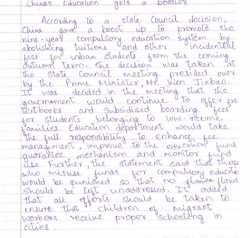 China's Education gets a booster
According to a state Council decision,
China gave a boost up to promote the
nine-year compulsory education system by
abolishing tuitions and other "incidental
fees for urban students from the coming
autumn term. The decision was taken at
the State Council meeting presided over
by the Prime Minister Mr. Wen Jiabao.
It was decided in the meeting that the
government would continue to offer free
textbooks and subsidised boarding fees
for students belonging to low-income
families. Education department would take
the full responsibility to enhance fee
management, improve to the education fund
guarantee mechanism and monitor fund
use. Further, the statement said that those
who misuse funds for compulsory education
would be punished so that no flaws
should be left unaddressed. It added
that all efforts should be taken to
ensure that children of migrant
workers receive proper schooling in
cities.